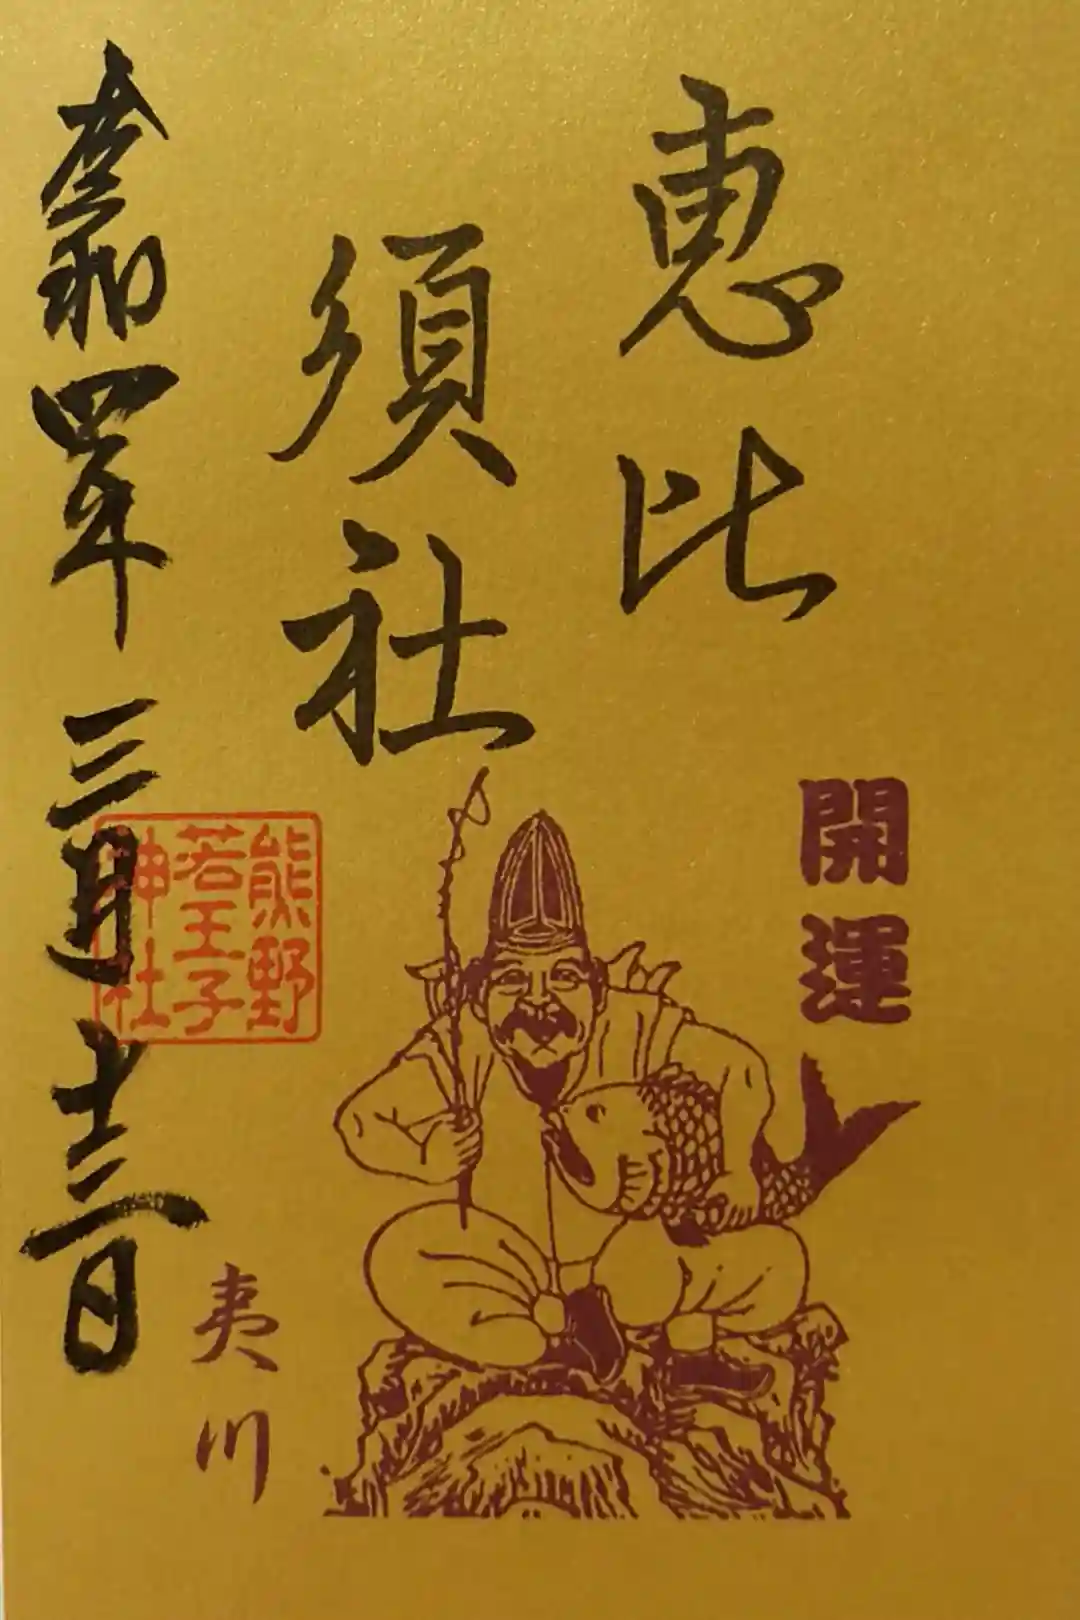 恵比
須社
開運
熊野
若王子
神社
夷川
令和四年三月十三日